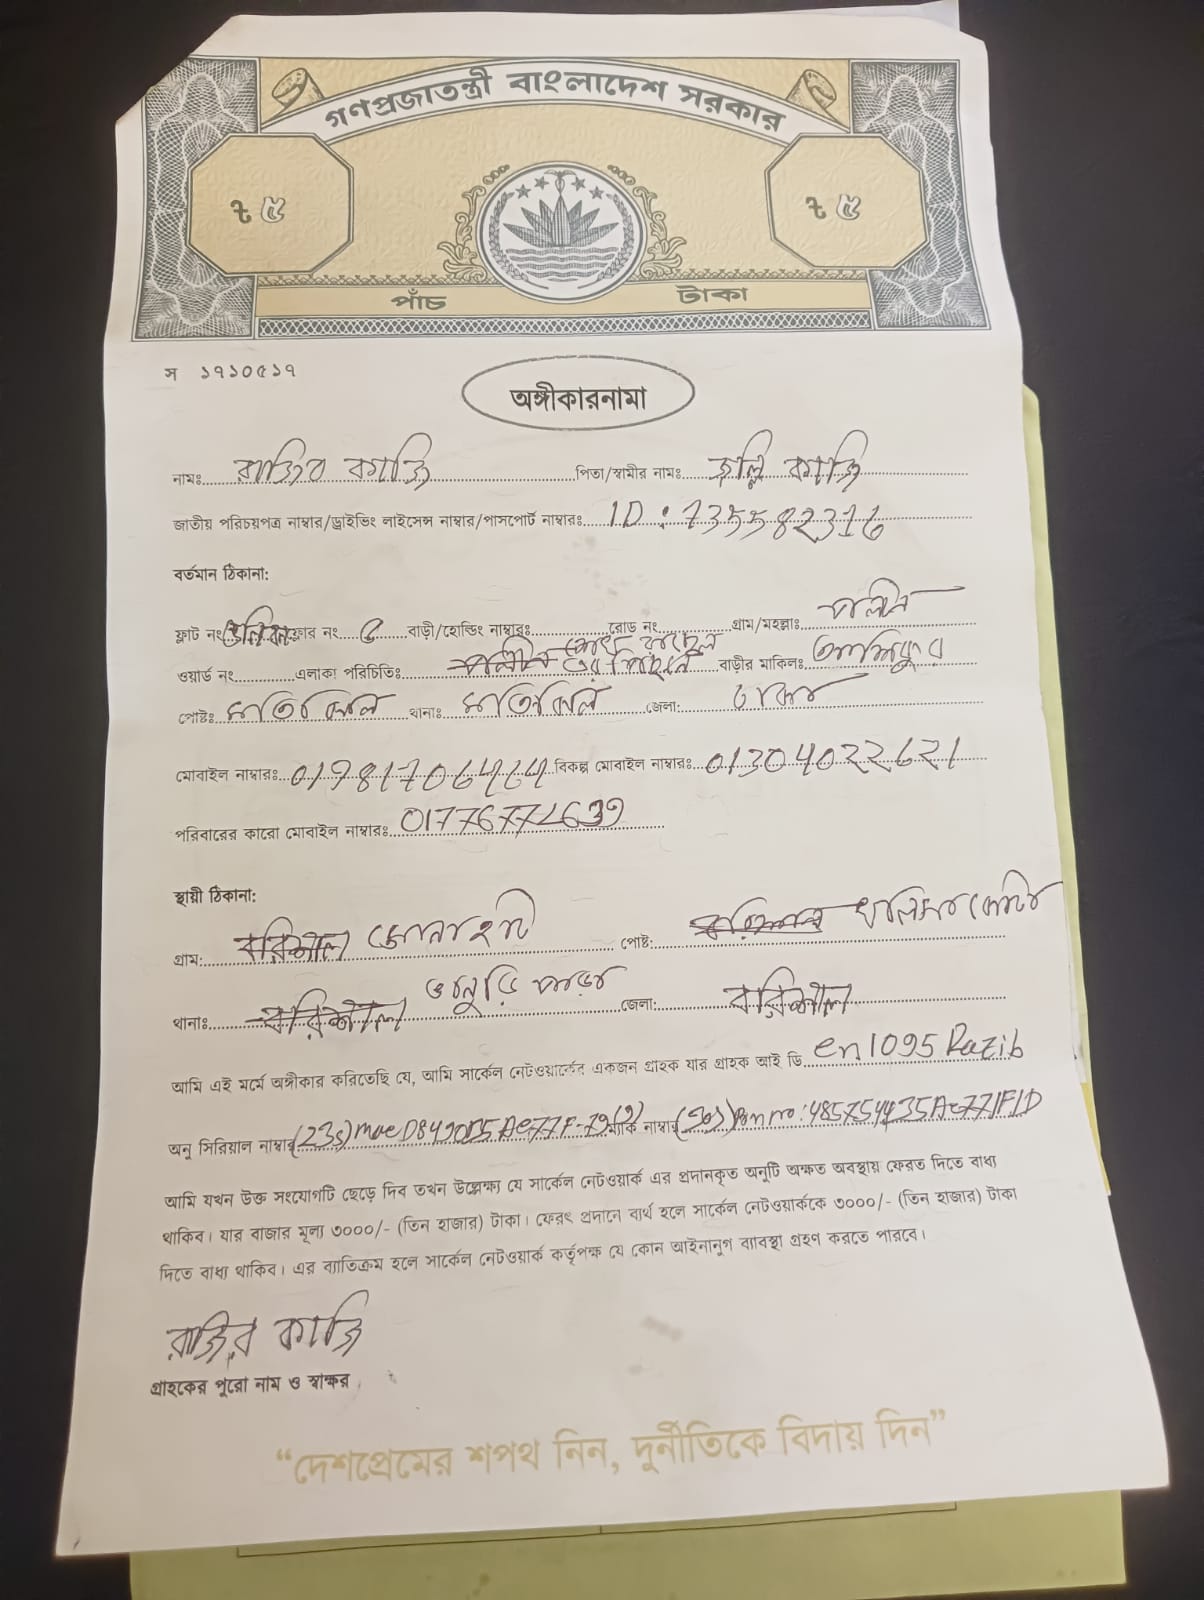 গণপ্রজাতন্ত্রী বাংলাদেশ সরকার
৳ ৫ ৳ ৫
পাঁচ টাকা
স ১৭১০৫১৭
অঙ্গীকারনামা
নামঃ রাজিব কাজি পিতা/স্বামীর নামঃ জলিল কাজি
জাতীয় পরিচয়পত্র নাম্বার/ড্রাইভিং লাইসেন্স নাম্বার/পাসপোর্ট নাম্বারঃ ID :
বর্তমান ঠিকানা:
ফ্লাট নং ফ্লোর নং বাড়ী/হোল্ডিং নাম্বারঃ রোড নং গ্রাম/মহল্লাঃ
ওয়ার্ড নং এলাকা পরিচিতিঃ বাড়ীর মালিকঃ
পোষ্টঃ মতিঝিল থানাঃ মতিঝিল জেলা: ঢাকা
মোবাইল নাম্বারঃ বিকল্প মোবাইল নাম্বারঃ 01304022621
পরিবারের কারো মোবাইল নাম্বারঃ
স্থায়ী ঠিকানা:
গ্রাম: বরিশাল পোষ্ট: বরিশাল
থানাঃ বরিশাল জেলা: বরিশাল
আমি এই মর্মে অঙ্গীকার করিতেছি যে, আমি সার্কেল নেটওয়ার্কের একজন গ্রাহক যার গ্রাহক আই ডি en1095 Razib
অনু সিরিয়াল নাম্বার
আমি যখন উক্ত সংযোগটি ছেড়ে দিব তখন উল্লেক্ষ্য যে সার্কেল নেটওয়ার্ক এর প্রদানকৃত অনুটি অক্ষত অবস্থায় ফেরত দিতে বাধ্য
থাকিব। যার বাজার মূল্য ৩০০০/- (তিন হাজার) টাকা। ফেরৎ প্রদানে ব্যর্থ হলে সার্কেল নেটওয়ার্ককে ৩০০০/- (তিন হাজার) টাকা
দিতে বাধ্য থাকিব। এর ব্যাতিক্রম হলে সার্কেল নেটওয়ার্ক কর্তৃপক্ষ যে কোন আইনানুগ ব্যাবস্থা গ্রহণ করতে পারবে।
রাজিব কাজি
গ্রাহকের পুরো নাম ও স্বাক্ষর
“দেশপ্রেমের শপথ নিন, দুর্নীতিকে বিদায় দিন”